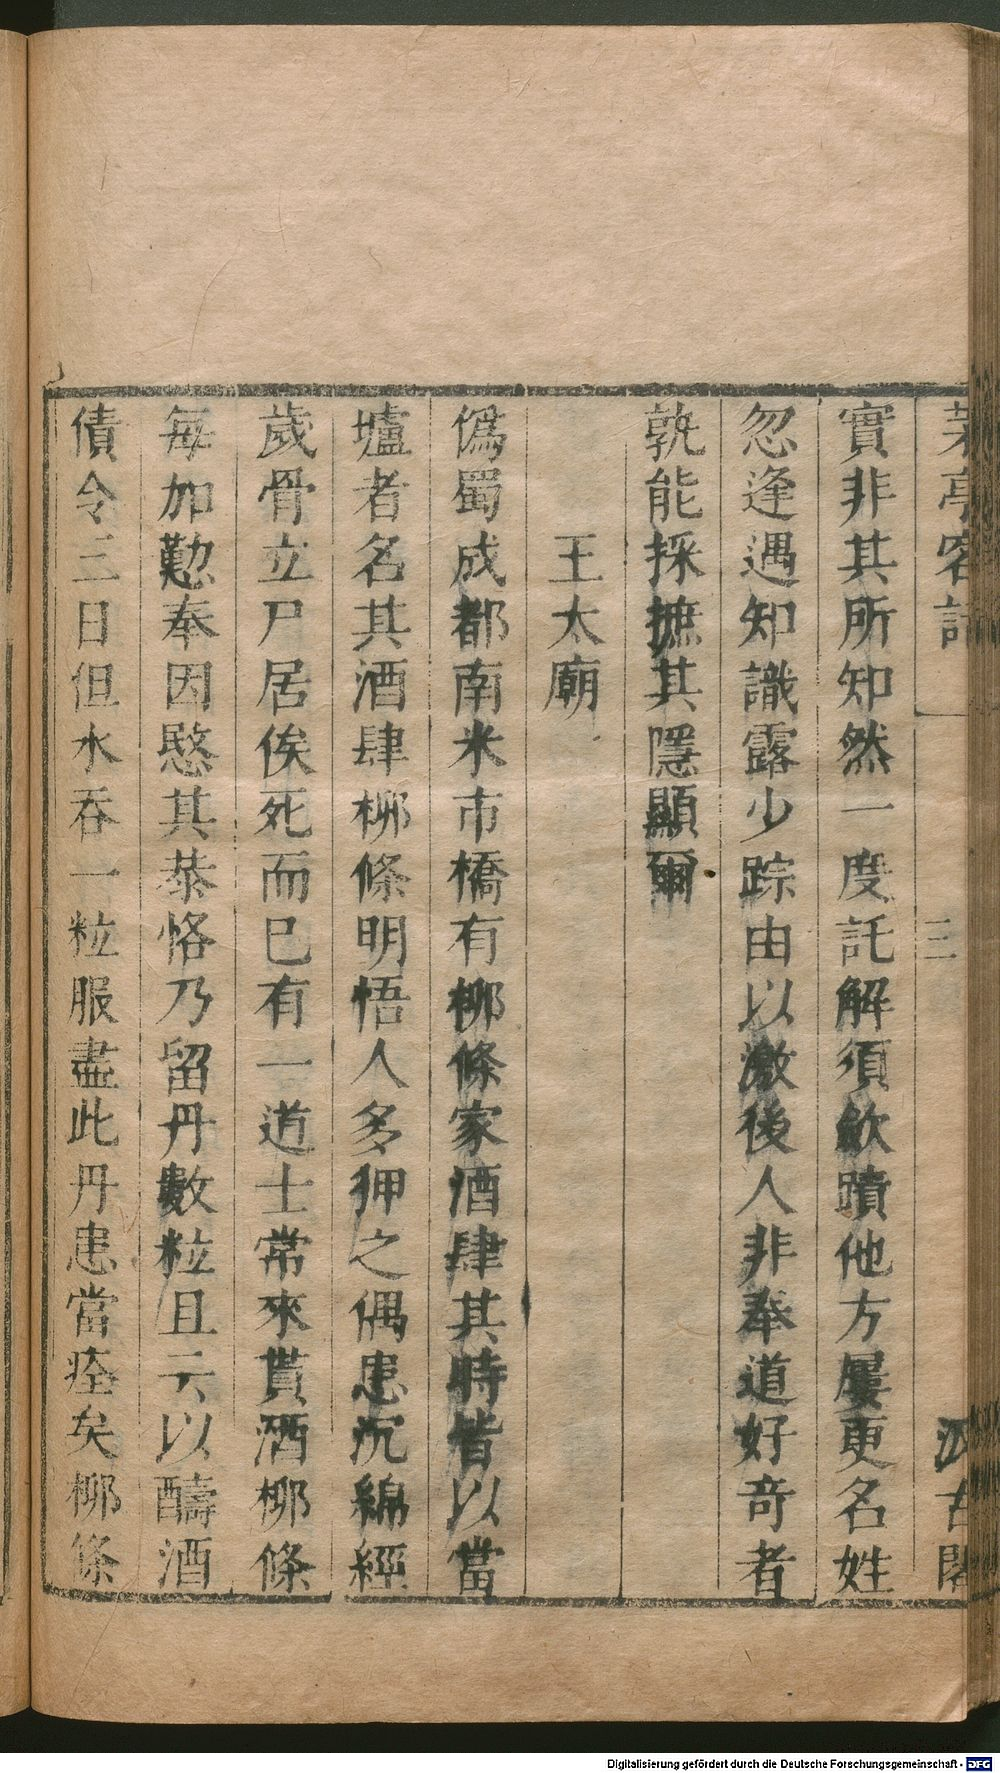 茅亭客話
三
汲古閣
實非其所知然一度託解須斂蹟他方屢更名姓
忽逢遇知識露少踪由以激後人非奉道好奇者
孰能採摭其隱顯爾
王太廟
僞蜀成都南米市橋有柳條家酒肆其時皆以當
壚者名其酒肆柳條明悟人多狎之偶患沉綿經
歲骨立尸居俟死而已有一道士常來貰酒柳條
每加懃奉因愍其恭恪乃留丹數粒且云以醻酒
債令三日但水吞一粒服盡此丹患當痊矣柳條
Digitalisierung gefördert durch die Deutsche Forschungsgemeinschaft - DFG